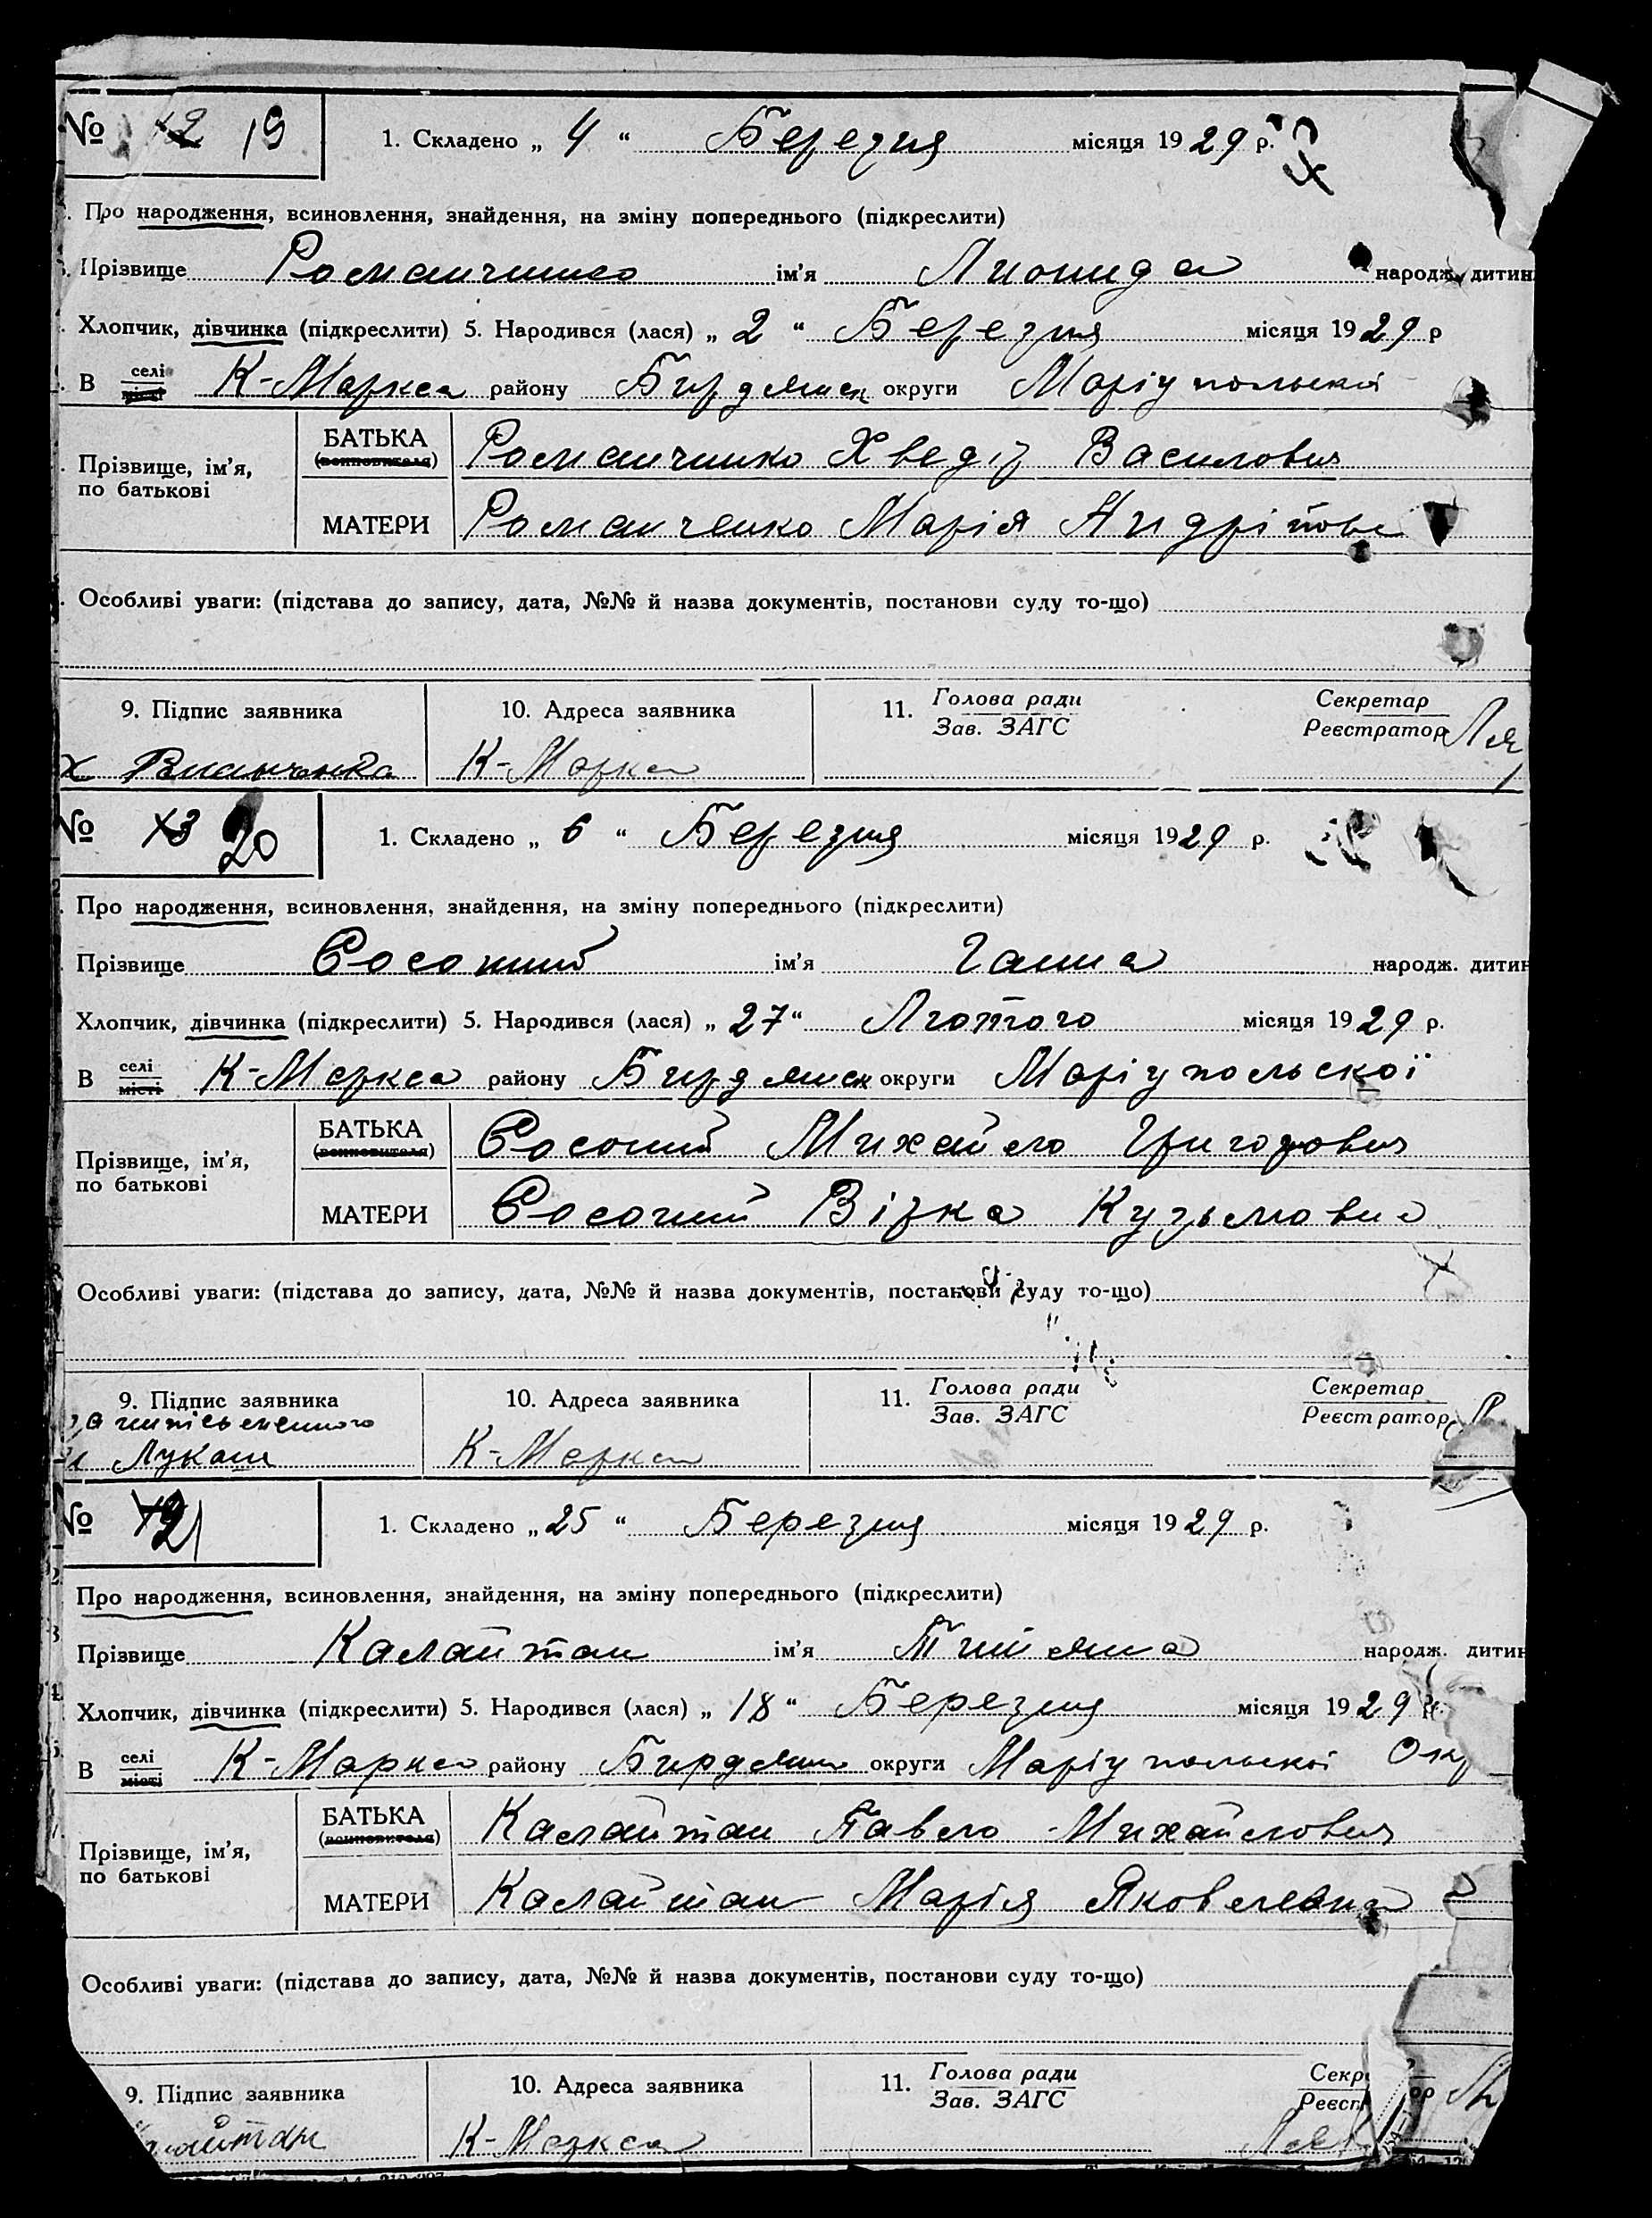 № 12 19 1. Складено „ 4 “ Березня місяця 1929 р.
Про народження, всиновлення, знайдення, на зміну попереднього (підкреслити)
Прізвище Романченко ім'я Лионида народж. дитин
Хлопчик, дівчинка (підкреслити) 5. Народився (лася) „ 2 “ Березня місяця 1929 р
В селі місті К-Маркса району Бирдянск округи Маріупольскої
Прізвище, ім'я, по батькові
БАТЬКА (всиновителя) Романченко Хведір Василович
МАТЕРИ Романченко Марія Андріївна
Особливі уваги: (підстава до запису, дата, №№ й назва документів, постанови суду то-що)
9. Підпис заявника 10. Адреса заявника 11. Голова ради Зав. ЗАГС Секретар Реєстратор
К-Маркса
№ 13 20 1. Складено „ 6 “ Березня місяця 1929 р.
Про народження, всиновлення, знайдення, на зміну попереднього (підкреслити)
Прізвище Сосоний ім'я Ганна народж. дитин
Хлопчик, дівчинка (підкреслити) 5. Народився (лася) „ 27 “ Лютого місяця 1929 р.
В селі місті К-Маркса району Бирдянск округи Маріупольскої
Прізвище, ім'я, по батькові
БАТЬКА (всиновителя) Сосоний Михайло Григорович
МАТЕРИ Сосоний Вірка Кузьмовна
Особливі уваги: (підстава до запису, дата, №№ й назва документів, постанови суду то-що)
9. Підпис заявника 10. Адреса заявника 11. Голова ради Зав. ЗАГС Секретар Реєстратор
за нипісьменного
Лукаш К-Маркса
№ 21 1. Складено „ 25 “ Березня місяця 1929 р.
Про народження, всиновлення, знайдення, на зміну попереднього (підкреслити)
Прізвище Калайтан ім'я Тийяна народж. дитин
Хлопчик, дівчинка (підкреслити) 5. Народився (лася) „ 18 “ Березня місяця 1929 р.
В селі місті К-Маркса району Бирдянск округи Маріупольскої Окр
Прізвище, ім'я, по батькові
БАТЬКА (всиновителя) Калайтан Павло Михайлович
МАТЕРИ Калайтан Марія Яковлевна
Особливі уваги: (підстава до запису, дата, №№ й назва документів, постанови суду то-що)
9. Підпис заявника 10. Адреса заявника 11. Голова ради Зав. ЗАГС
К-Маркса